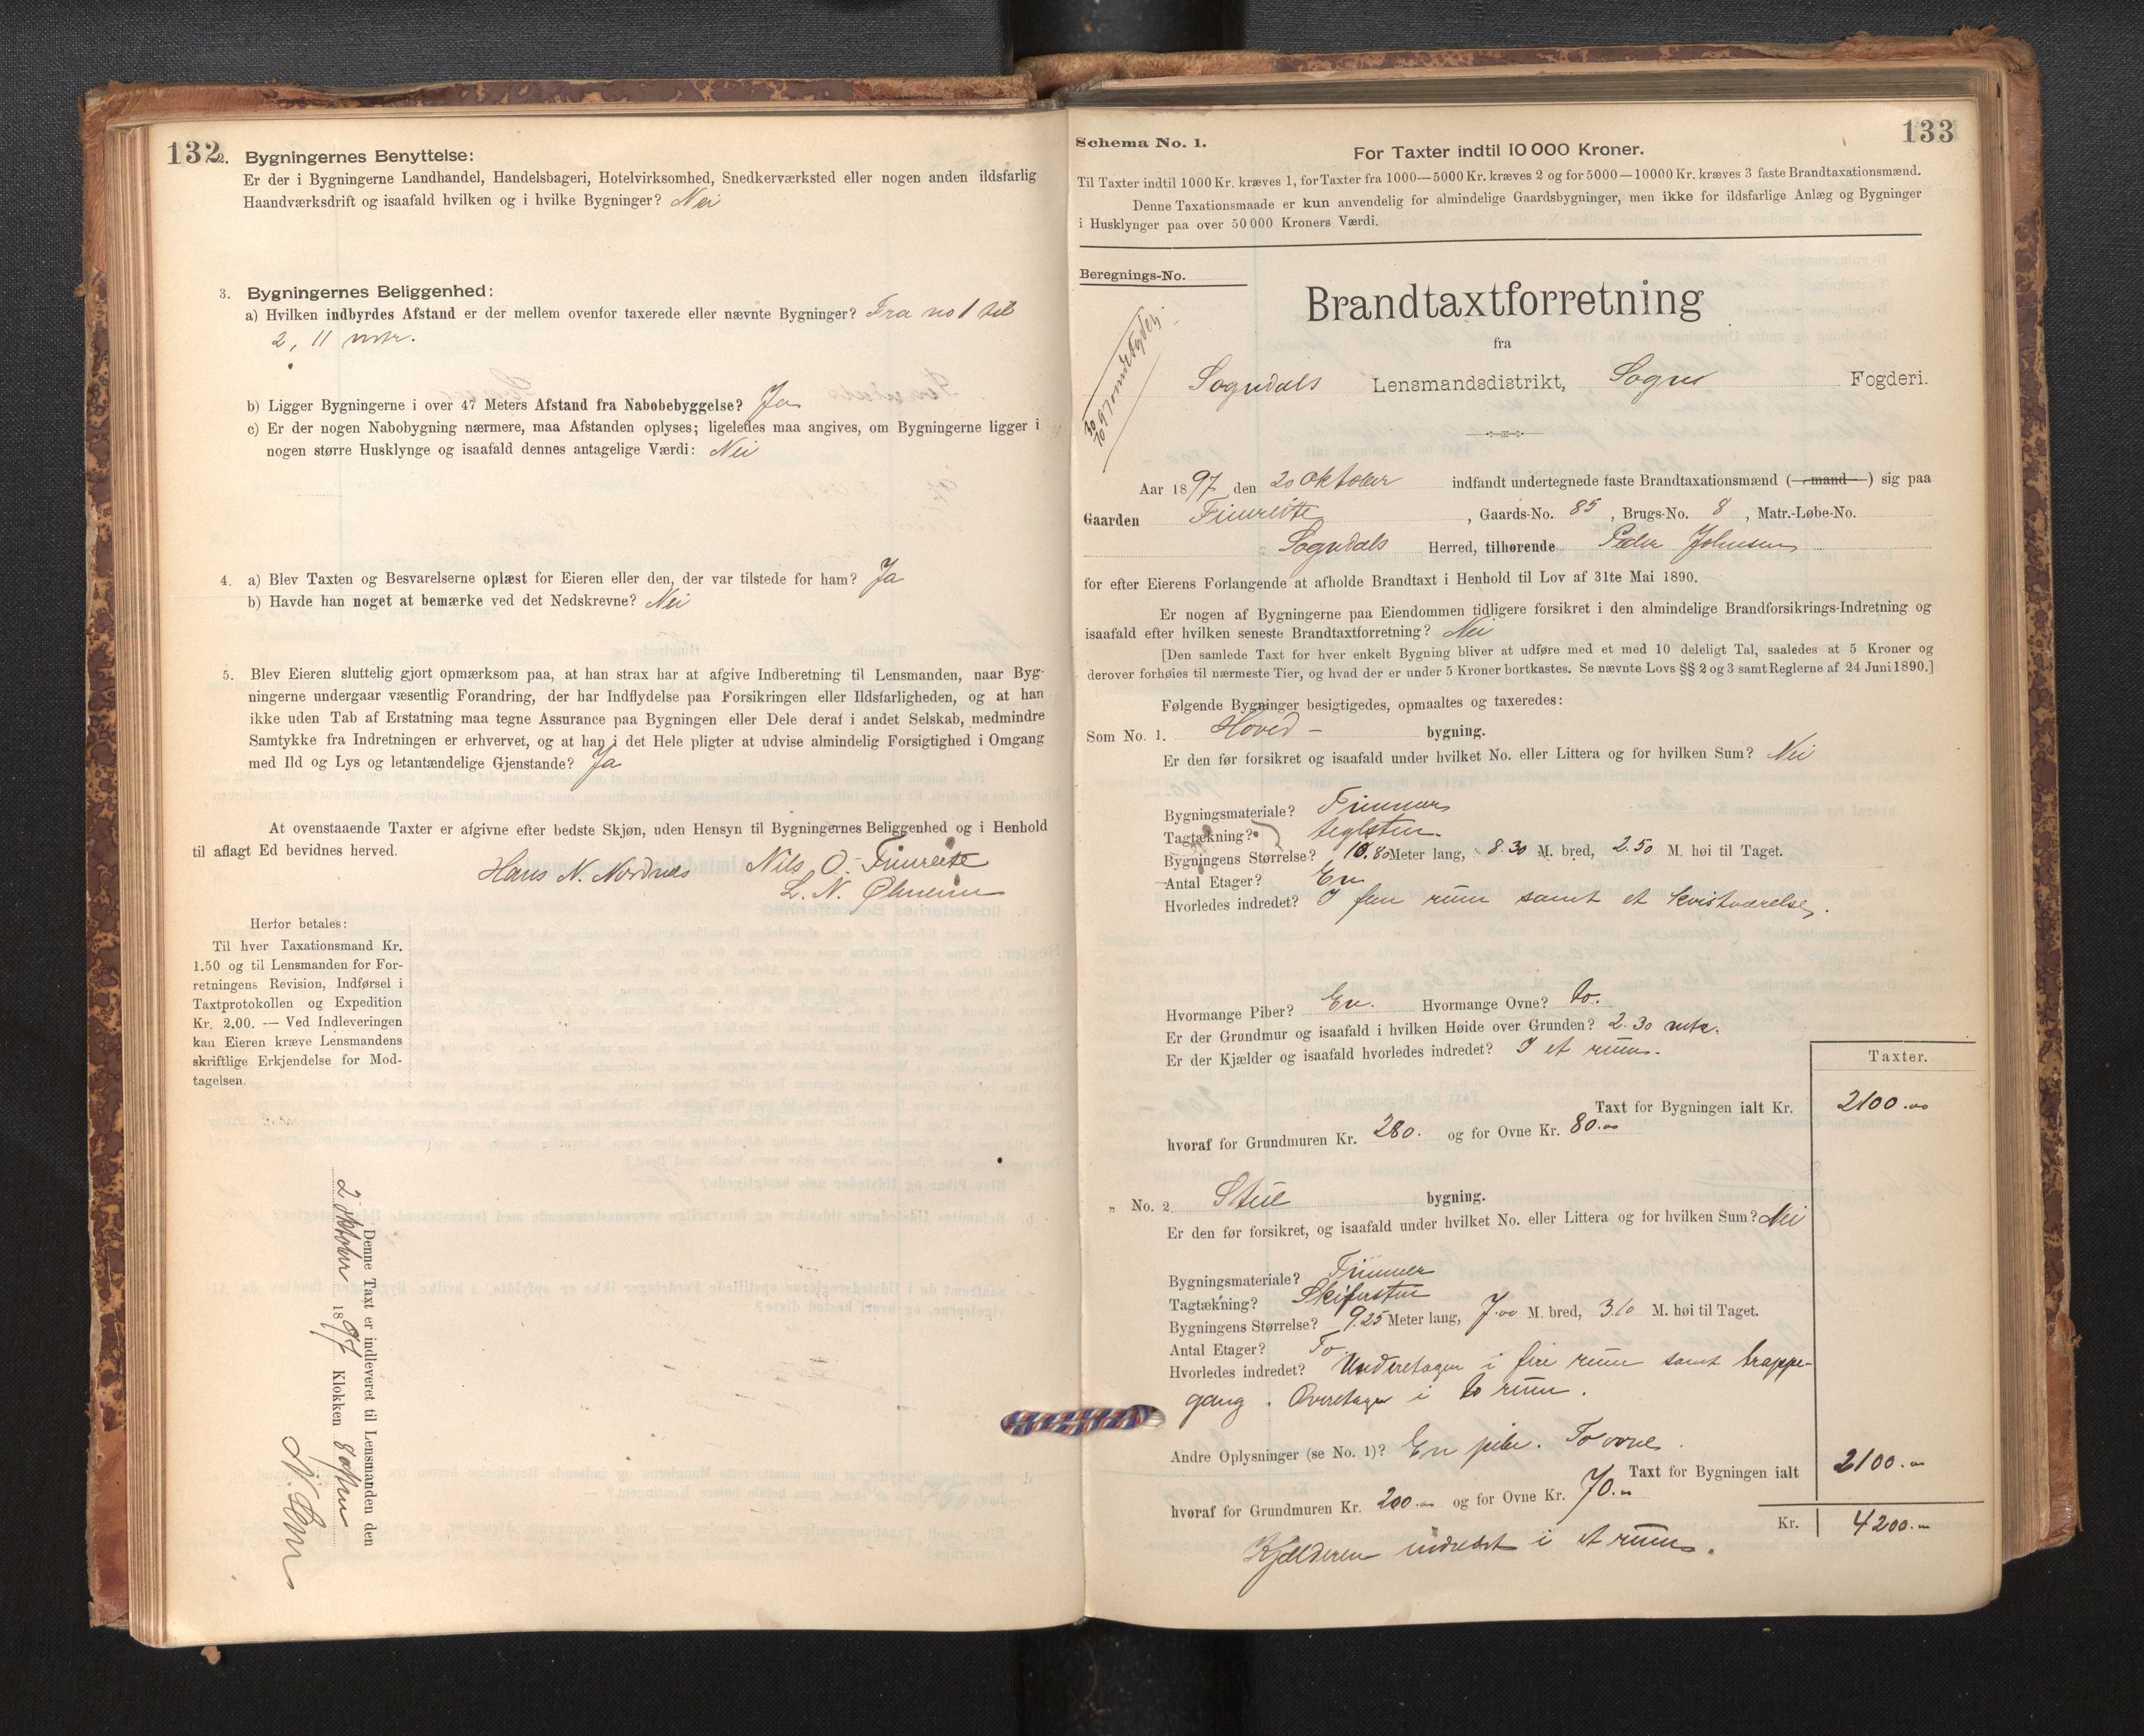 132
2. Bygningernes Benyttelse:
Er der i Bygningerne Landhandel, Handelsbageri, Hotelvirksomhed, Snedkerværksted eller nogen anden ildsfarlig
Haandværksdrift og isaafald hvilken og i hvilke Bygninger? Nei
3. Bygningernes Beliggenhed:
a) Hvilken indbyrdes Afstand er der mellem ovenfor taxerede eller nævnte Bygninger? Fra no 1 til
2, 11 mtr.
b) Ligger Bygningerne i over 47 Meters Afstand fra Nabobebyggelse? Ja
c) Er der nogen Nabobygning nærmere, maa Afstanden oplyses; ligeledes maa angives, om Bygningerne ligger i
nogen større Husklynge og isaafald dennes antagelige Værdi: Nei
4. a) Blev Taxten og Besvarelserne oplæst for Eieren eller den, der var tilstede for ham? Ja
b) Havde han noget at bemærke ved det Nedskrevne? Nei
5. Blev Eieren sluttelig gjort opmærksom paa, at han strax har at afgive Indberetning til Lensmanden, naar Byg-
ningerne undergaar væsentlig Forandring, der har Indflydelse paa Forsikringen eller Ildsfarligheden, og at han
ikke uden Tab af Erstatning maa tegne Assurance paa Bygningen eller Dele deraf i andet Selskab, medmindre
Samtykke fra Indretningen er erhvervet, og at han i det Hele pligter at udvise almindelig Forsigtighed i Omgang
med Ild og Lys og letantændelige Gjenstande? Ja
At ovenstaaende Taxter er afgivne efter bedste Skjøn, uden Hensyn til Bygningernes Beliggenhed og i Henhold
til aflagt Ed bevidnes herved.
Hans N. Nordnes Nils O. Fimreite
L. N.
Herfor betales:
Til hver Taxationsmand Kr.
1.50 og til Lensmanden for For-
retningens Revision, Indførsel i
Taxtprotokollen og Expedition
Kr. 2.00. — Ved Indleveringen
kan Eieren kræve Lensmandens
skriftlige Erkjendelse for Mod-
tagelsen.
Denne Taxt er indleveret til Lensmanden den
2 oktober 1897 Klokken 8 aften
133
Schema No. 1.
For Taxter indtil 10 000 Kroner.
Til Taxter indtil 1000 Kr. kræves 1, for Taxter fra 1000—5000 Kr. kræves 2 og for 5000—10000 Kr. kræves 3 faste Brandtaxationsmænd.
Denne Taxationsmaade er kun anvendelig for almindelige Gaardsbygninger, men ikke for ildsfarlige Anlæg og Bygninger
i Husklynger paa over 50 000 Kroners Værdi.
Beregnings-No.
30/10 97
Brandtaxtforretning
fra
Sogndals Lensmandsdistrikt, Sogns Fogderi.
Aar 1897, den 20 oktober indfandt undertegnede faste Brandtaxationsmænd (—mand—) sig paa
Gaarden Fimreite, Gaards-No. 85, Brugs-No. 8, Matr.-Løbe-No.
Sogndals Herred, tilhørende Peder Johnsen
for efter Eierens Forlangende at afholde Brandtaxt i Henhold til Lov af 31te Mai 1890.
Er nogen af Bygningerne paa Eiendommen tidligere forsikret i den almindelige Brandforsikrings-Indretning og
isaafald efter hvilken seneste Brandtaxtforretning? Nei
[Den samlede Taxt for hver enkelt Bygning bliver at udføre med et med 10 deleligt Tal, saaledes at 5 Kroner og
derover forhøies til nærmeste Tier, og hvad der er under 5 Kroner bortkastes. Se nævnte Lovs §§ 2 og 3 samt Reglerne af 24 Juni 1890.]
Følgende Bygninger besigtigedes, opmaaltes og taxeredes:
Som No. 1. Hoved- bygning.
Er den før forsikret og isaafald under hvilket No. eller Littera og for hvilken Sum? Nei
Bygningsmateriale? Timmer
Tagtækning? teglsten.
Bygningens Størrelse? 10.80 Meter lang, 8.30 M. bred, 2.50 M. høi til Taget.
Antal Etager? En
Hvorledes indredet? I fem rum samt et kvistværelse.
Hvormange Piber? En. Hvormange Ovne? to.
Er der Grundmur og isaafald i hvilken Høide over Grunden? 2.30 mtr.
Er der Kjælder og isaafald hvorledes indredet? I et rum.
Taxter.
Taxt for Bygningen ialt Kr. 2100.00
hvoraf for Grundmuren Kr. 280. og for Ovne Kr. 80.00
„ No. 2. Stue bygning.
Er den før forsikret, og isaafald under hvilket No. eller Littera og for hvilken Sum? Nei
Bygningsmateriale? Timmer
Tagtækning? Skifersten
Bygningens Størrelse? 9.25 Meter lang, 7.00 M. bred, 3.10 M. høi til Taget.
Antal Etager? To
Hvorledes indredet? Underetagen i fire rum samt trappe-
gang. Overetagen i to rum.
Andre Oplysninger (se No. 1)? En pibe. To ovne.
Taxt for Bygningen ialt 2100.00
hvoraf for Grundmuren Kr. 200.00 og for Ovne Kr. 70.00
Kr. 4200.00
Kjælderen indredet i et rum.